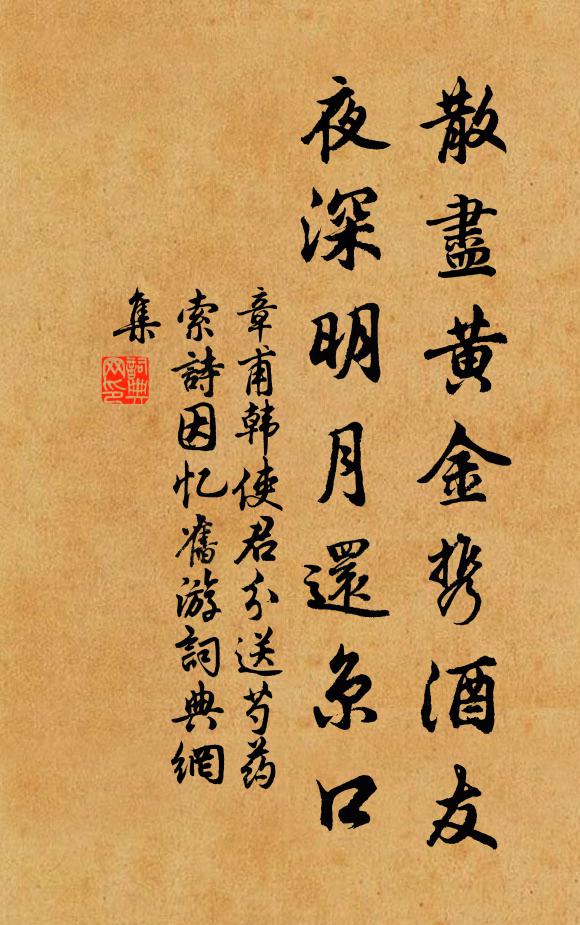 散盡黄金携酒友
夜深明月還京口
章甫韩使君分送芍药
索詩因忆舊游詞典網
集
詞典
网印